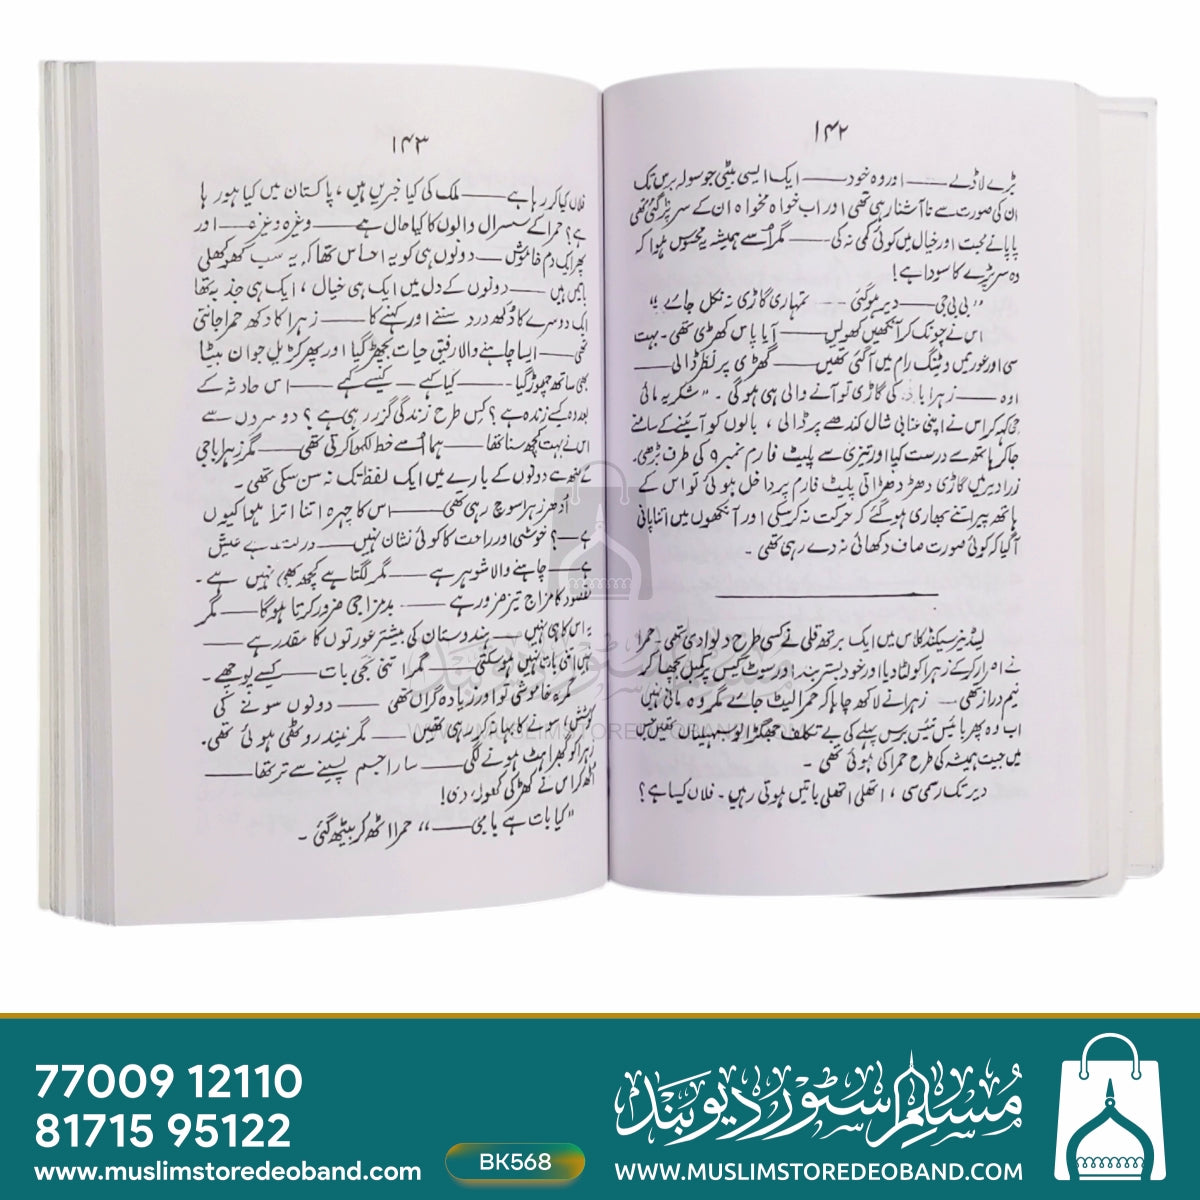 ۱۴۲
بڑے لاڈلے —— اور وہ خود —— ایک ایسی بیٹی جو سولہ برس تک
ان کی صورت سے نا آشنا رہی تھی اور اب خواہ مخواہ ان کے سر پڑ گئی تھی
پاپا نے محبت اور خیال میں کوئی کمی نہ کی —— مگر اُسے ہمیشہ یہ محسوس ہوا کہ
وہ سر پڑے کا سودا ہے!
"بی بی جی — دیر ہو گئی —— تمہاری گاڑی نہ نکل جائے"
اس نے چونک کر آنکھیں کھولیں —— آیا پاس کھڑی تھی۔ بہت
سی اور عورتیں ویٹنگ رام میں آ گئی تھیں —— گھڑی پر نظر ڈالی ——
اوہ —— زہرا باجی کی گاڑی تو آنے والی ہی ہو گی۔ "شکریہ مائی
جی کہہ کر اس نے اپنی عنابی شال کندھے پر ڈالی، بالوں کو آئینے کے سامنے
جا کر ہاتھ سے درست کیا اور تیزی سے پلیٹ فارم نمبر ۹ کی طرف بڑھی۔
ذرا دیر میں گاڑی دھڑ دھڑاتی پلیٹ فارم پر داخل ہوئی تو اس کے
ہاتھ پیر اتنے بھاری ہو گئے کہ حرکت نہ کر سکی اور آنکھوں میں اتنا پانی
آ گیا کہ کوئی صورت صاف دکھائی نہ دے رہی تھی۔
لیڈیز سیکنڈ کلاس میں ایک برتھ قلی نے کسی طرح دلوا دی تھی۔ حمرا
نے اصرار کر کے زہرا کو لٹا دیا اور خود بستر بند اور سوٹ کیس پر کمبل بچھا کر
نیم دراز تھی — زہرا نے لاکھ چاہا کہ حمرا لیٹ جائے مگر وہ مانی نہیں
اب وہ پھر بائیس تئیس برس پہلے کی بے تکلف جھگڑالو سہیلیاں تھیں جس
میں جیت ہمیشہ کی طرح حمرا کی ہوئی تھی۔
دیر تک رسمی سی، اتھلی اتھلی باتیں ہوتی رہیں۔ فلاں کیسا ہے؟
۱۴۳
فلاں کیا کر رہا ہے —— ملک کی کیا خبریں ہیں، پاکستان میں کیا ہو رہا
ہے؟ حمرا کے سسرال والوں کا کیا حال ہے —— وغیرہ وغیرہ —— اور
پھر ایک دم خاموش —— دونوں ہی کو یہ احساس تھا کہ یہ سب کھوکھلی
باتیں ہیں —— دونوں کے دل میں ایک ہی خیال، ایک ہی جذبہ تھا
ایک دوسرے کا دُکھ درد سننے اور کہنے کا —— زہرا کا دکھ حمرا جانتی
تھی —— ایسا چاہنے والا رفیقِ حیات بچھڑ گیا اور پھر کڑیل جوان بیٹا
بھی ساتھ چھوڑ گیا —— کیا کہے — کیسے کہے —— اس حادثہ کے
بعد وہ کیسے زندہ ہے؟ کس طرح زندگی گزر رہی ہے؟ دوسروں سے
اس نے بہت کچھ سنا تھا —— ہما اُسے خط لکھا کرتی تھی — مگر زہرا باجی
کے منھ سے دونوں کے بارے میں ایک لفظ تک نہ سن سکی تھی۔
اُدھر زہرا سوچ رہی تھی —— اس کا چہرہ اتنا اترا ہوا کیوں
ہے —؟ خوشی اور راحت کا کوئی نشان نہیں —— دولت ہے عیش
ہے — چاہنے والا شوہر ہے —— مگر لگتا ہے کچھ بھی نہیں ہے۔
مقصود کا مزاج تیز ضرور ہے —— بدمزاجی ضرور کرتا ہو گا —— مگر
یہ اس کا ہی نہیں —— ہندوستان کی بیشتر عورتوں کا مقدر ہے ——
نہیں اتنی بات نہیں ہو سکتی —— مگر اتنی نجی بات —— کیسے پوچھے۔
کمرہ خاموشی تو اور زیادہ گراں تھی —— دونوں سونے کی
کوشش / سونے کا بہانہ کر رہی تھیں —— مگر نیند روٹھی ہوئی تھی۔
زہرا کو گھبراہٹ ہونے لگی —— سارا جسم پسینے سے تر تھا ——
اُٹھ کر اس نے کھڑکی کھول دی!
"کیا بات ہے باجی ——" حمرا اٹھ کر بیٹھ گئی۔
WWW.MUSLIMSTOREDEOBAND.COM
77009 12110
81715 95122
www.muslimstoredeoband.com
BK568
مسلم سٹور دیوبند
WWW.MUSLIMSTOREDEOBAND.COM